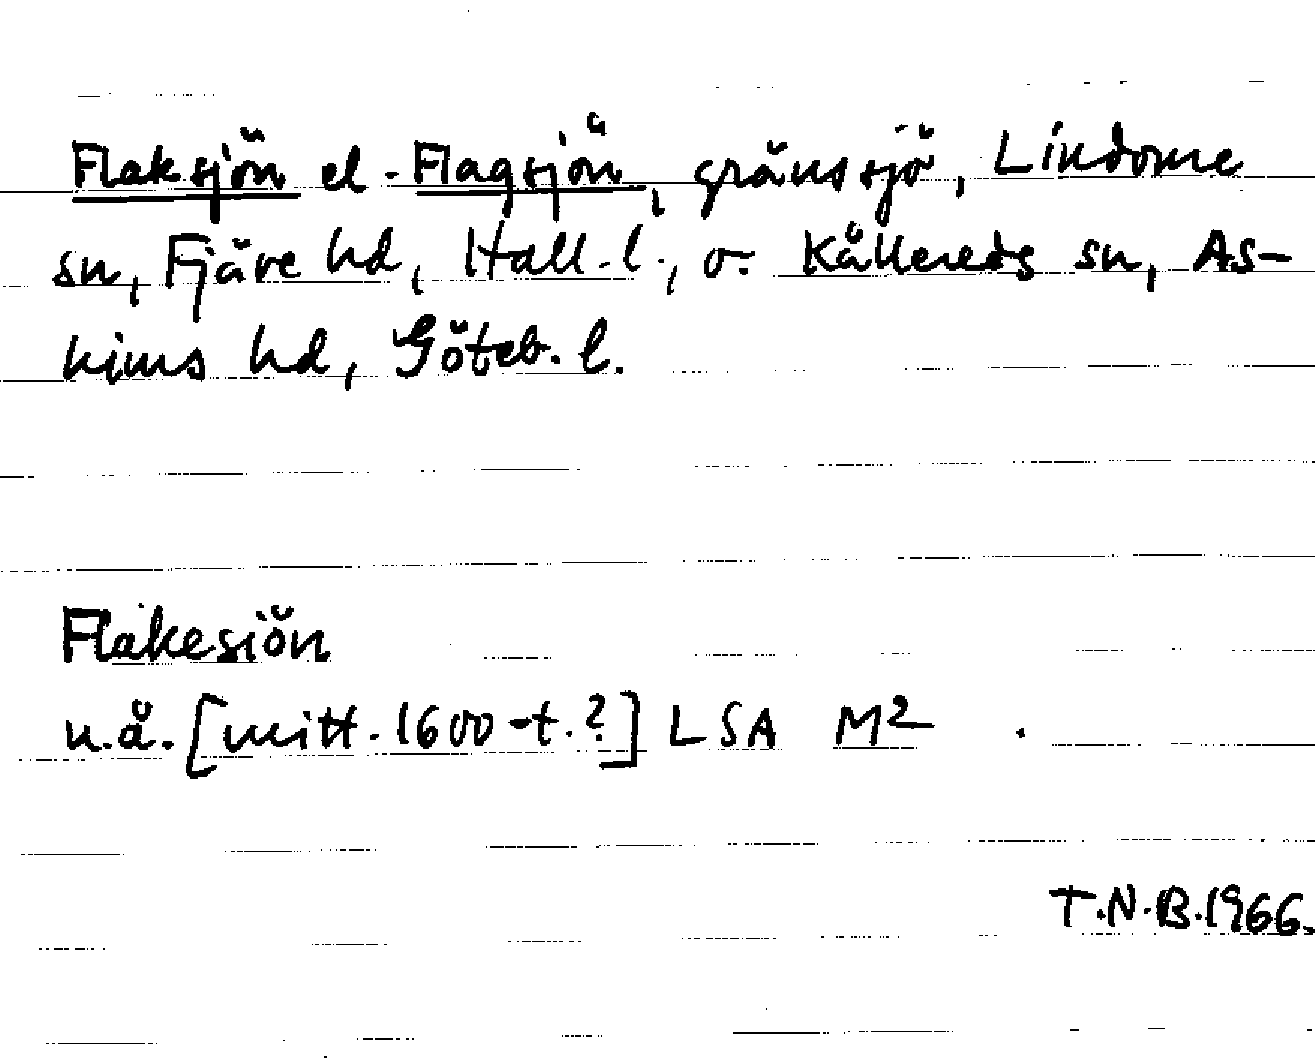 Flaksjön el. Flagsjön, gränssjö, Lindome
sn, Fjäre hd, Hall. l., o. Kållereds sn, As-
kims hd, Göteb. l.
Flakesiön
u.å. [mitt. 1600-t.?] LSA M2
T.N.B. 1966.